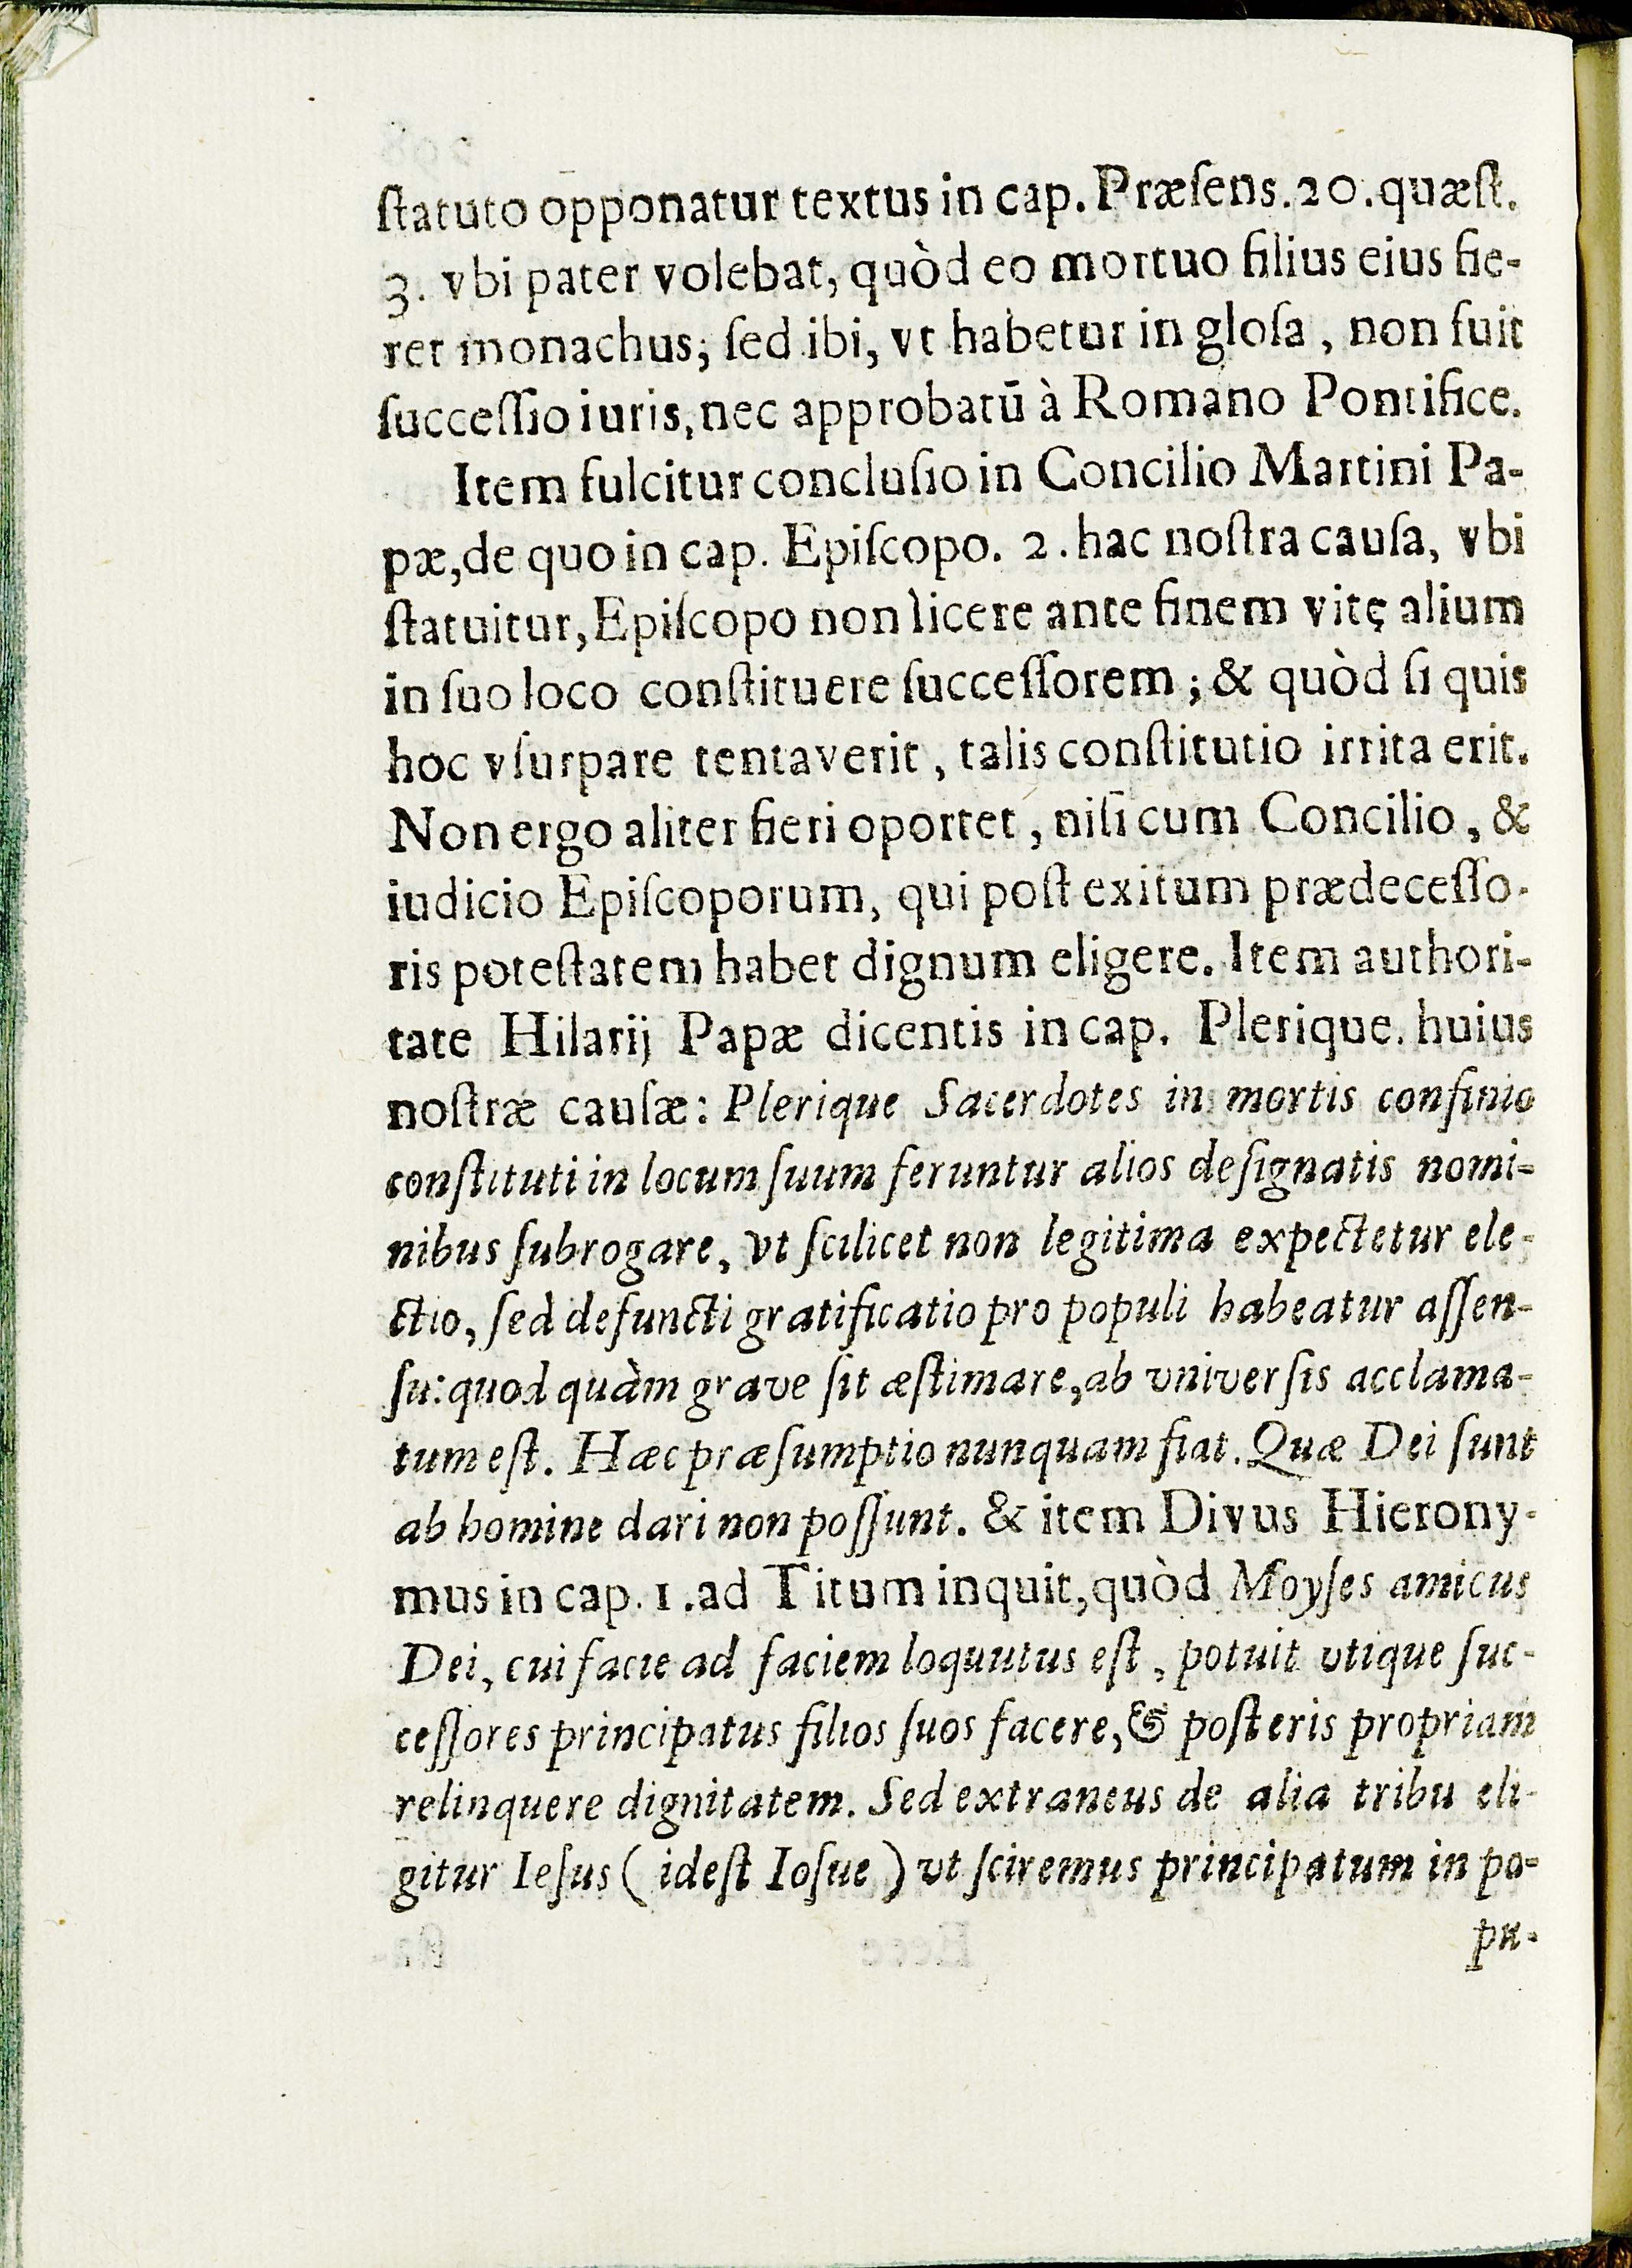 ſtatuto opponatur textus in cap. Præſens. 20. quæſt.
3. vbi pater volebat, quòd eo mortuo filius eius fie-
ret monachus; ſed ibi, vt habetur in gloſa, non fuit
ſucceſſio iuris, nec approbatū à Romano Pontifice.
Item fulcitur concluſio in Concilio Martini Pa-
pæ, de quo in cap. Epiſcopo. 2. hac noſtra cauſa, vbi
ſtatuitur, Epiſcopo non licere ante finem vitę alium
in ſuo loco conſtituere ſucceſſorem; & quòd ſi quis
hoc vſurpare tentaverit, talis conſtitutio irrita erit.
Non ergo aliter fieri oportet, niſi cum Concilio, &
iudicio Epiſcoporum, qui poſt exitum prædeceſſo-
ris poteſtatem habet dignum eligere. Item authori-
tate Hilarij Papæ dicentis in cap. Plerique. huius
noſtræ cauſæ: Plerique Sacerdotes in mortis confinio
conſtituti in locum ſuum feruntur alios deſignatis nomi-
nibus ſubrogare, vt ſcilicet non legitima expectetur ele-
ctio, ſed defuncti gratificatio pro populi habeatur aſſen-
ſu: quod quàm grave ſit æſtimare, ab vniverſis acclama-
tum eſt. Hæc præſumptio nunquam fiat. Quæ Dei ſunt
ab homine dari non poſſunt. & item Divus Hierony-
mus in cap. 1. ad Titum inquit, quòd Moyſes amicus
Dei, cui facie ad faciem loquutus eſt, potuit vtique ſuc-
ceſſores principatus filios ſuos facere, & poſteris propriam
relinquere dignitatem. Sed extraneus de alia tribu eli-
gitur Ieſus ( ideſt Ioſue ) vt ſciremus principatum in po-
pu-